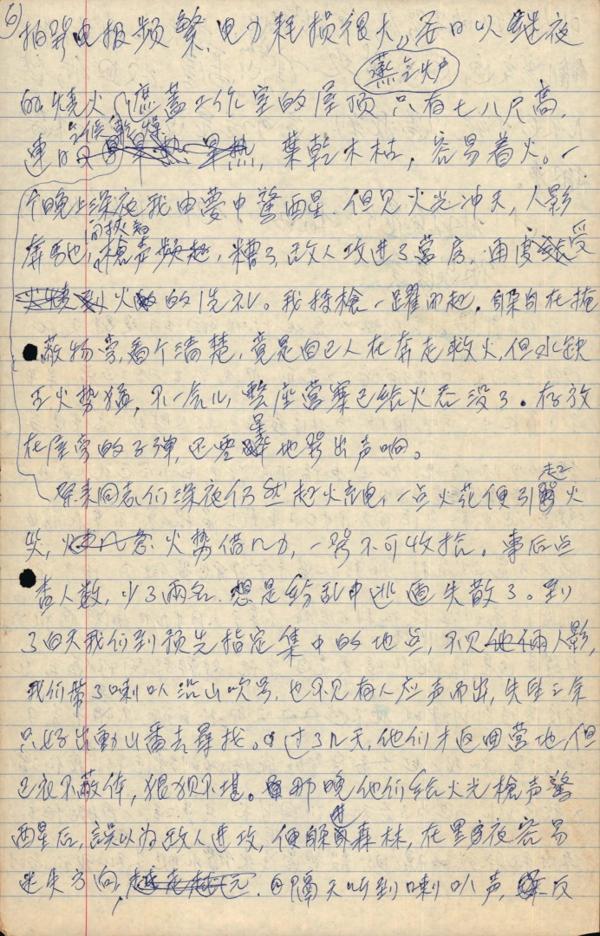 6
拍發电报频繁,电力耗损很大,每日以继夜
蒸气炉
的燒火,遮盖工作室的屋顶只有七八尺高,
連日
乾燥
旱热,葉乾木枯,容易着火。一
个晚上深夜我由夢中驚醒,但见火光冲天,人影
奔馳,槍声频起,糟了,敌人攻进了营房,再度受
火的洗礼。我持槍一躍而起,躲在掩
蔽物旁,看个清楚,竟是自己人在奔走救火,但水缺
火势猛,不一会儿,整座营寨已给火吞没了。存放
在屋旁的子弹,还零星地發出声响。
同志们深夜仍然起火充电,一点火花便引起火
災,火势借风力,一發不可收拾。事后点
查人数,少了兩名,想是纷乱中逃遁失散了。到
了白天我们到预先指定集中的地点,不见他俩人影,
我们带了喇叭沿山吹号,也不见有人应声而出,失望之余
只好出動山番去尋找。过了几天,他们才返回营地,但
已衣不蔽体,狼狈不堪。那晚他们给火光槍声驚
醒后,誤以为敌人进攻,便躲进森林,在黑夜容易
迷失方向,越走越远。隔天听到喇叭声,反